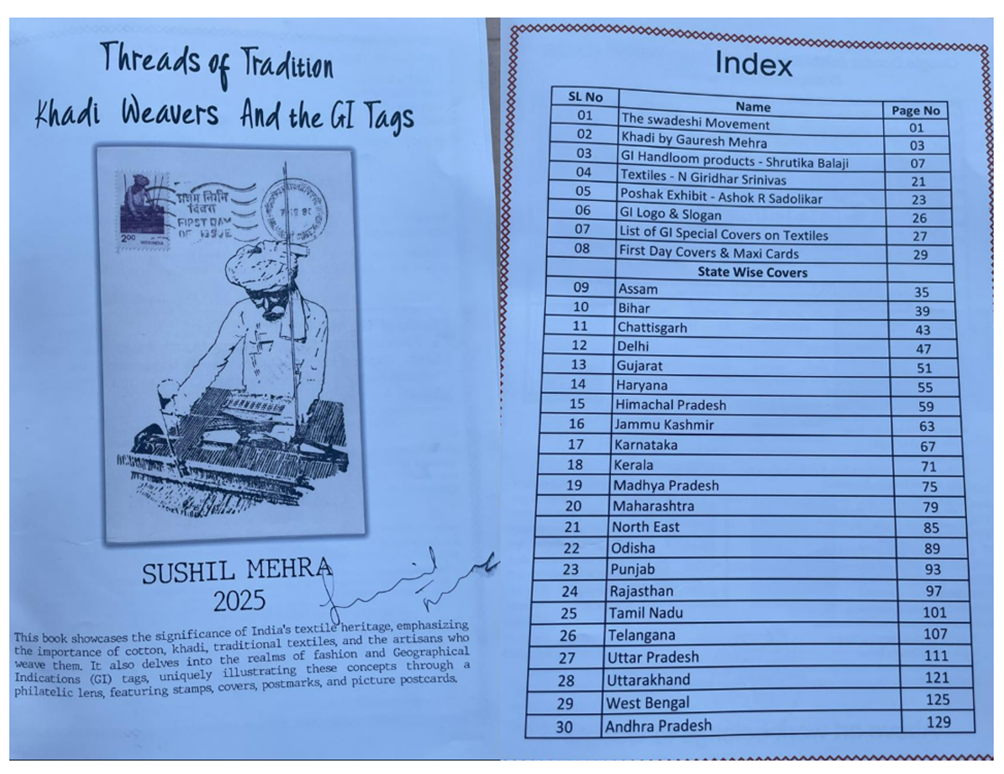 Threads of Tradition
Khadi Weavers And the GI Tags
प्रथम
दिवस
FIRST DAY
OF ISSUE
2.00
SUSHIL MEHRA
2025
This book showcases the significance of India's textile heritage, emphasizing
the importance of cotton, khadi, traditional textiles, and the artisans who
weave them. It also delves into the realms of fashion and Geographical
Indications (GI) tags, uniquely illustrating these concepts through a
philatelic lens, featuring stamps, covers, postmarks, and picture postcards.
Index
SL No Name Page No
01 The swadeshi Movement 01
02 Khadi by Gauresh Mehra 03
03 GI Handloom products - Shrutika Balaji 07
04 Textiles - N Giridhar Srinivas 21
05 Poshak Exhibit - Ashok R Sadolikar 23
06 GI Logo & Slogan 26
07 List of GI Special Covers on Textiles 27
08 First Day Covers & Maxi Cards 29
State Wise Covers
09 Assam 35
10 Bihar 39
11 Chattisgarh 43
12 Delhi 47
13 Gujarat 51
14 Haryana 55
15 Himachal Pradesh 59
16 Jammu Kashmir 63
17 Karnataka 67
18 Kerala 71
19 Madhya Pradesh 75
20 Maharashtra 79
21 North East 85
22 Odisha 89
23 Punjab 93
24 Rajasthan 97
25 Tamil Nadu 101
26 Telangana 107
27 Uttar Pradesh 111
28 Uttarakhand 121
29 West Bengal 125
30 Andhra Pradesh 129